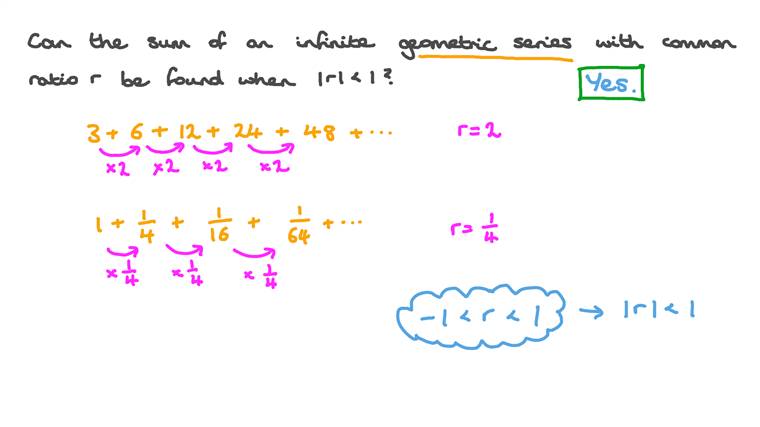 Can the sum of an infinite geometric series with common
ratio r be found when |r| < 1?
Yes.
3 + 6 + 12 + 24 + 48 + ... r = 2
×2 ×2 ×2 ×2
1 + 1/4 + 1/16 + 1/64 + ... r = 1/4
×1/4 ×1/4 ×1/4
-1 < r < 1 → |r| < 1